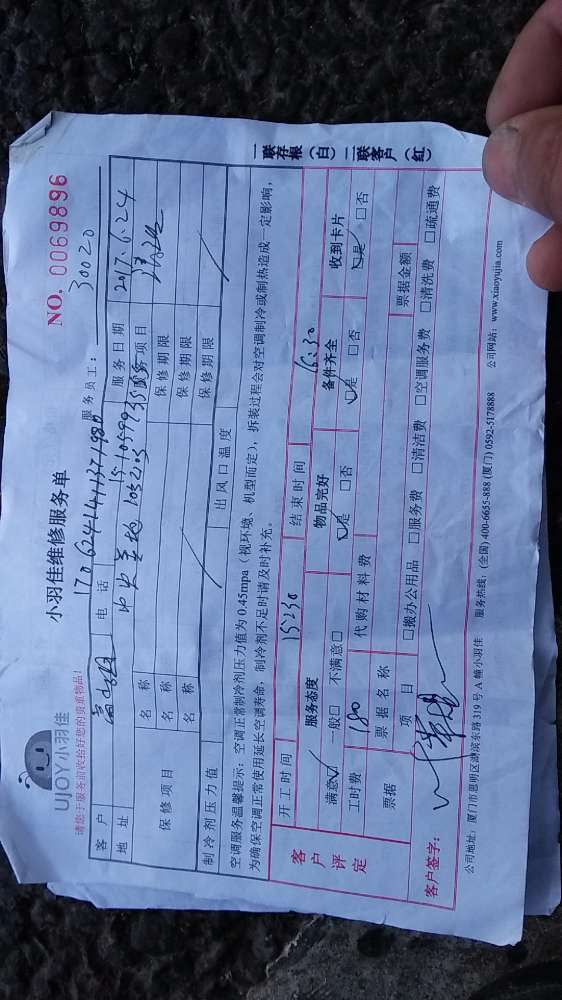 UIOY小羽佳
小羽佳维修服务单
NO. 0069896
请您于服务前收拾好您的贵重物品!
服务员工: 30020
客户 电话
地址 服务日期 2017.6.24
保修项目 名称 服务项目
名称 保修期限
名称 保修期限
保修期限
制冷剂压力值 出风口温度
空调服务温馨提示:空调正常制冷剂压力值为0.45mpa(视环境、机型而定),拆装过程会对空调制冷或制热造成一定影响,
为确保空调正常使用延长空调寿命,制冷剂不足时请及时补充。
一联存根(白) 二联客户(红)
客户评定
开工时间 15:30 结束时间 16:30
服务态度 物品完好 备件齐全 收到卡片
满意☑ 一般□ 不满意□ ☑是 □否 ☑是 □否 ☑是 □否
工时费 180 代购材料费
票据 票据名称 票据金额
项目 □搬办公用品 □服务费 □清洁费 □空调服务费 □清洗费 □疏通费
客户签字:
公司地址:厦门市思明区湖滨东路319号A幢小羽佳 服务热线:(全国) 400-6655-888 (厦门) 0592-5178888 公司网站:www.xiaoyujia.com